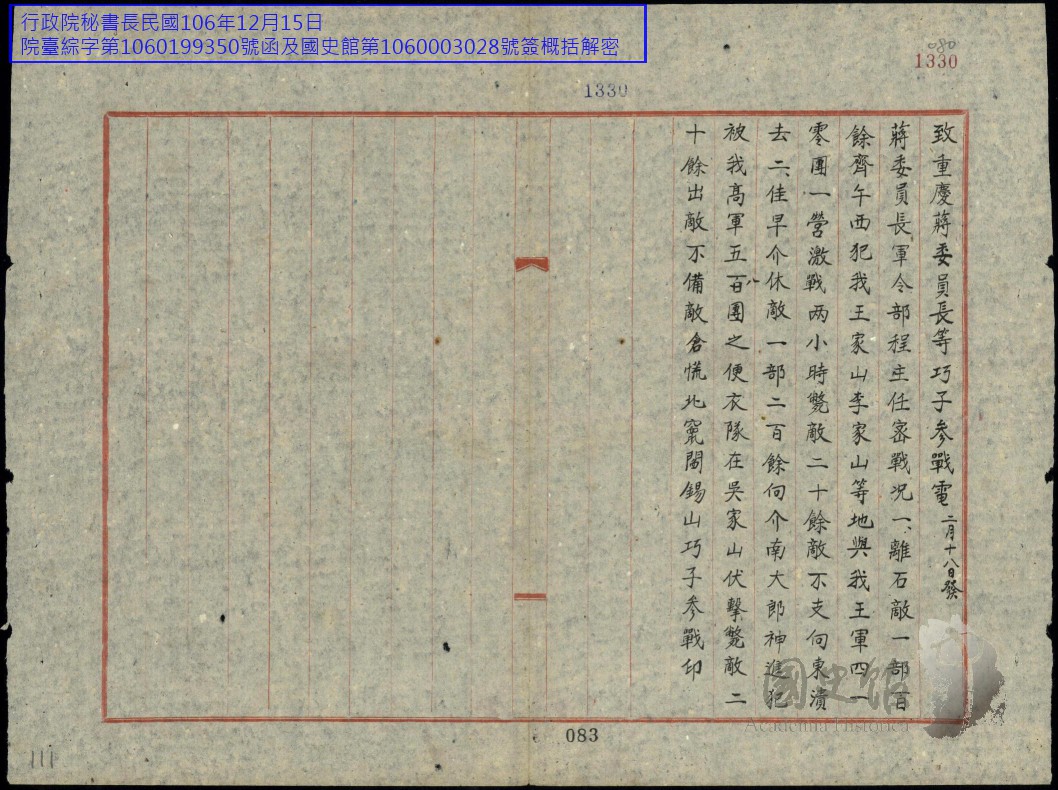 行政院秘書長民國106年12月15日
院臺綜字第1060199350號函及國史館第1060003028號簽概括解密
080
1330
1330
致重慶蔣委員長等巧子參戰電二月十八日發
蔣委員長軍令部程主任密戰況一、離石敵一部百
餘齊午西犯我王家山李家山等地與我王軍四一
零團一營激戰兩小時斃敵二十餘敵不支向東潰
去二、佳早介休敵一部二百餘向介南大郎神進犯
被我高軍五八百團之便衣隊在吳家山伏擊斃敵二
十餘出敵不備敵倉慌北竄閻錫山巧子參戰印
國史館
Academia Historica
083
111